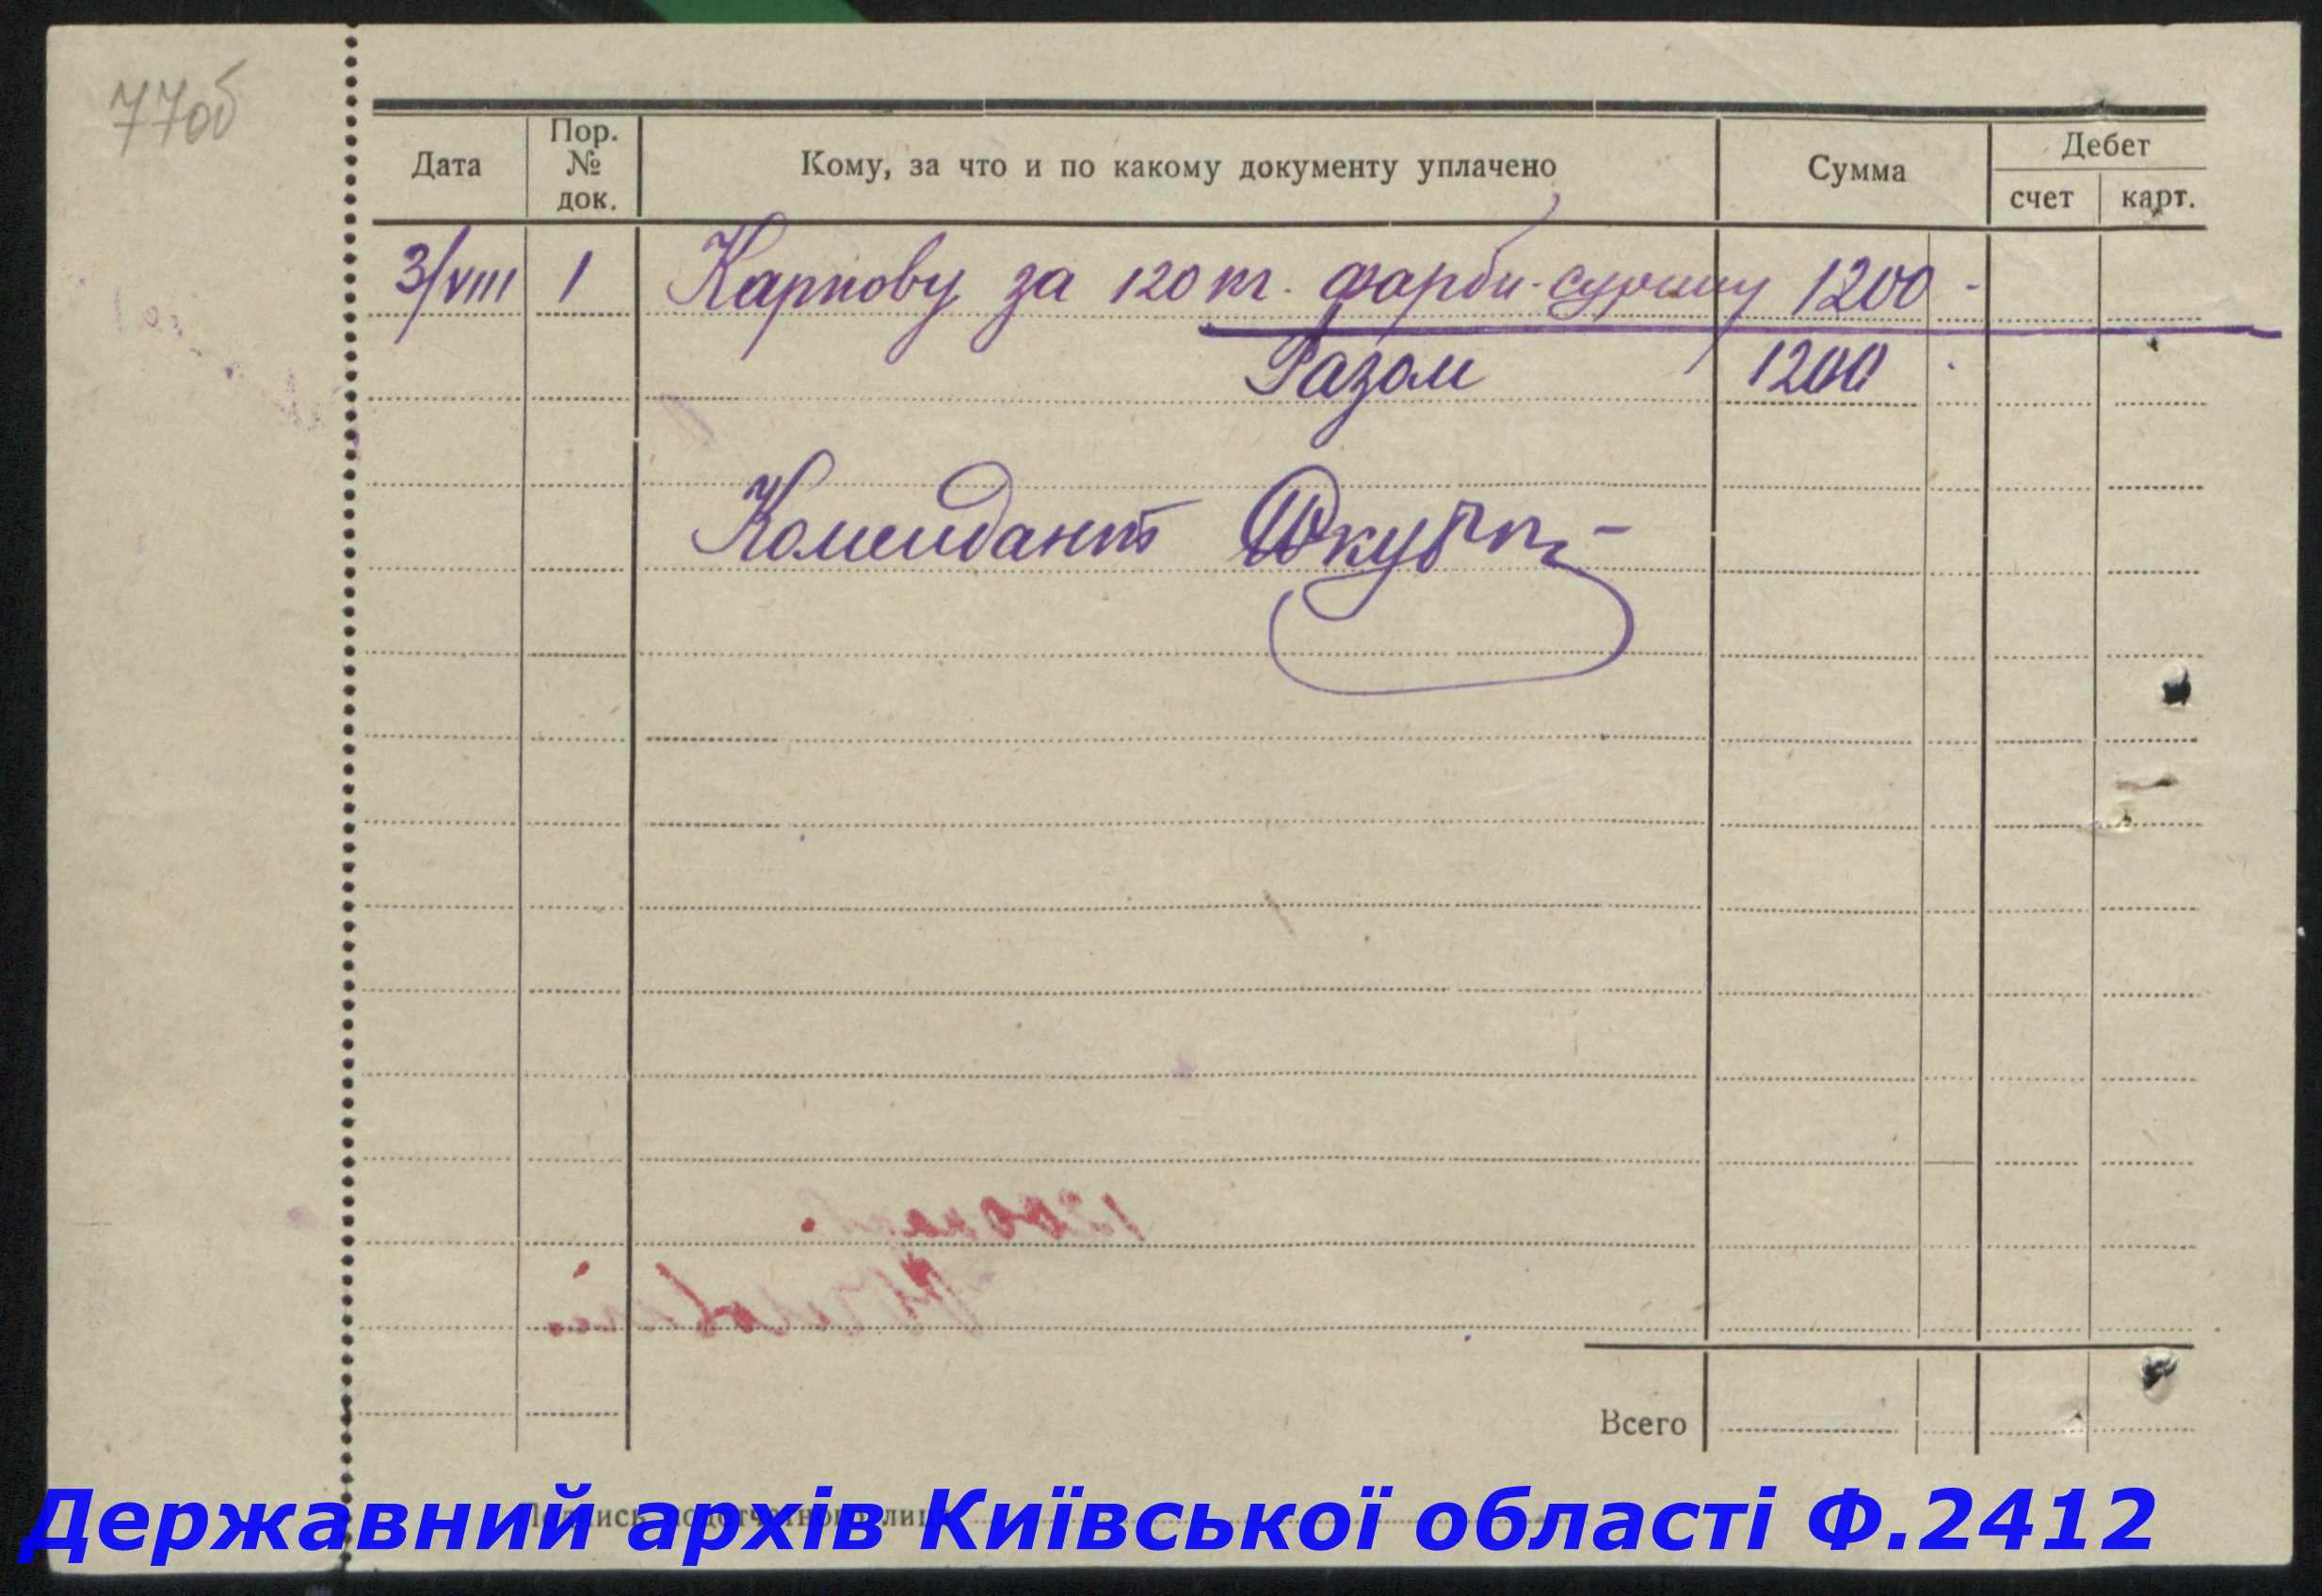 77об
Дата
Пор. № док.
Кому, за что и по какому документу уплачено
Сумма
Дебет
счет карт.
3/VIII 1 Карпову за 120 кг. фарби-суриму 1200 -
Разом 1200
Комендант
Всего
Подпись подотчетного лица
Державний архів Київської області Ф.2412